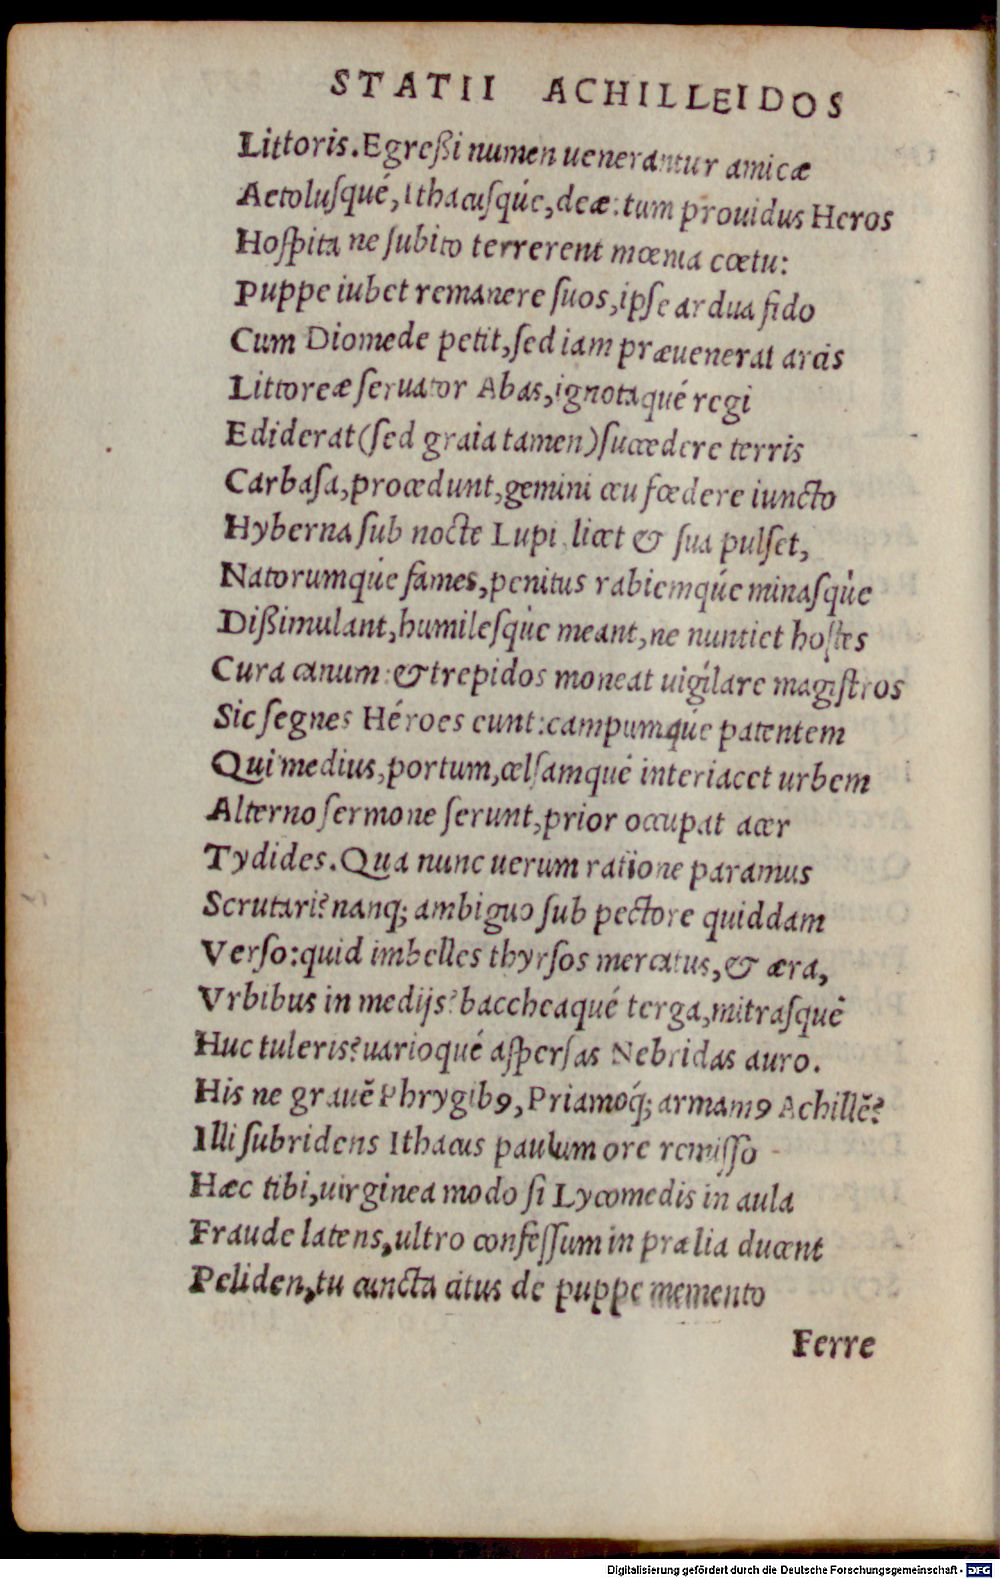 STATII ACHILLEIDOS
Littoris. Egreßi numen uenerantur amicæ
Aetolusqué, Ithacusqúe, deæ: tum prouidus Heros
Hoſpita ne ſubito terrerent mœnia cœtu:
Puppe iubet remanere ſuos, ipſe ardua fido
Cum Diomede petit, ſed iam præuenerat arcis
Littoreæ ſeruator Abas, ignotaqué regi
Ediderat (ſed graia tamen) ſuccedere terris
Carbaſa, procedunt, gemini ceu fœdere iuncto
Hyberna ſub nocte Lupi, licet & ſua pulſet,
Natorumqúe fames, penitus rabiemqúe minaſqùe
Dißimulant, humileſqùe meant, ne nuntiet hoſtes
Cura canum: & trepidos moneat uigílare magiſtros
Sic ſegnes Héroes eunt: campumqúe patentem
Qui medius, portum, celſamqué interiacet urbem
Alterno ſermone ſerunt, prior occupat acer
Tydides. Qua nunc uerum ratione paramus
Scrutari? nanq; ambiguo ſub pectore quiddam
Verſo: quid imbelles thyrſos mercatus, & æra,
Vrbibus in medijs? baccheaqué terga, mitraſquè
Huc tuleris? uarioqué aſperſas Nebridas auro.
His ne grauē Phrygibꝰ, Priamoq́; armamꝰ Achillē?
Illi ſubridens Ithacus paulum ore remiſſo
Hæc tibi, uirginea modo ſi Lycomedis in aula
Fraude latens, ultro confeſſum in prælia ducent
Peliden, tu cuncta citus de puppe memento
Ferre
Digitalisierung gefördert durch die Deutsche Forschungsgemeinschaft - DFG